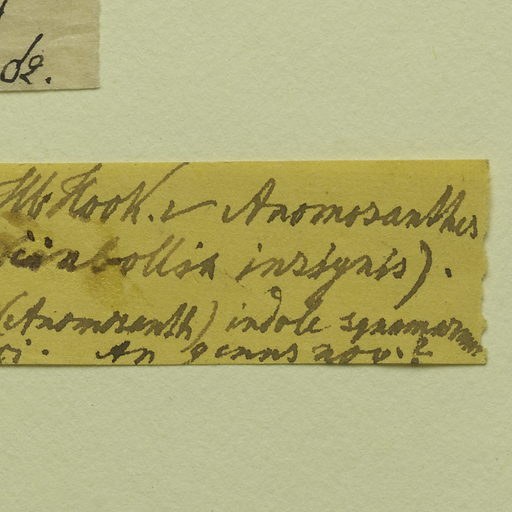 de.
Hb Hook. e Anomosanthes
insignis).
(Anomosanth) indole squamarum
An genus nov.?